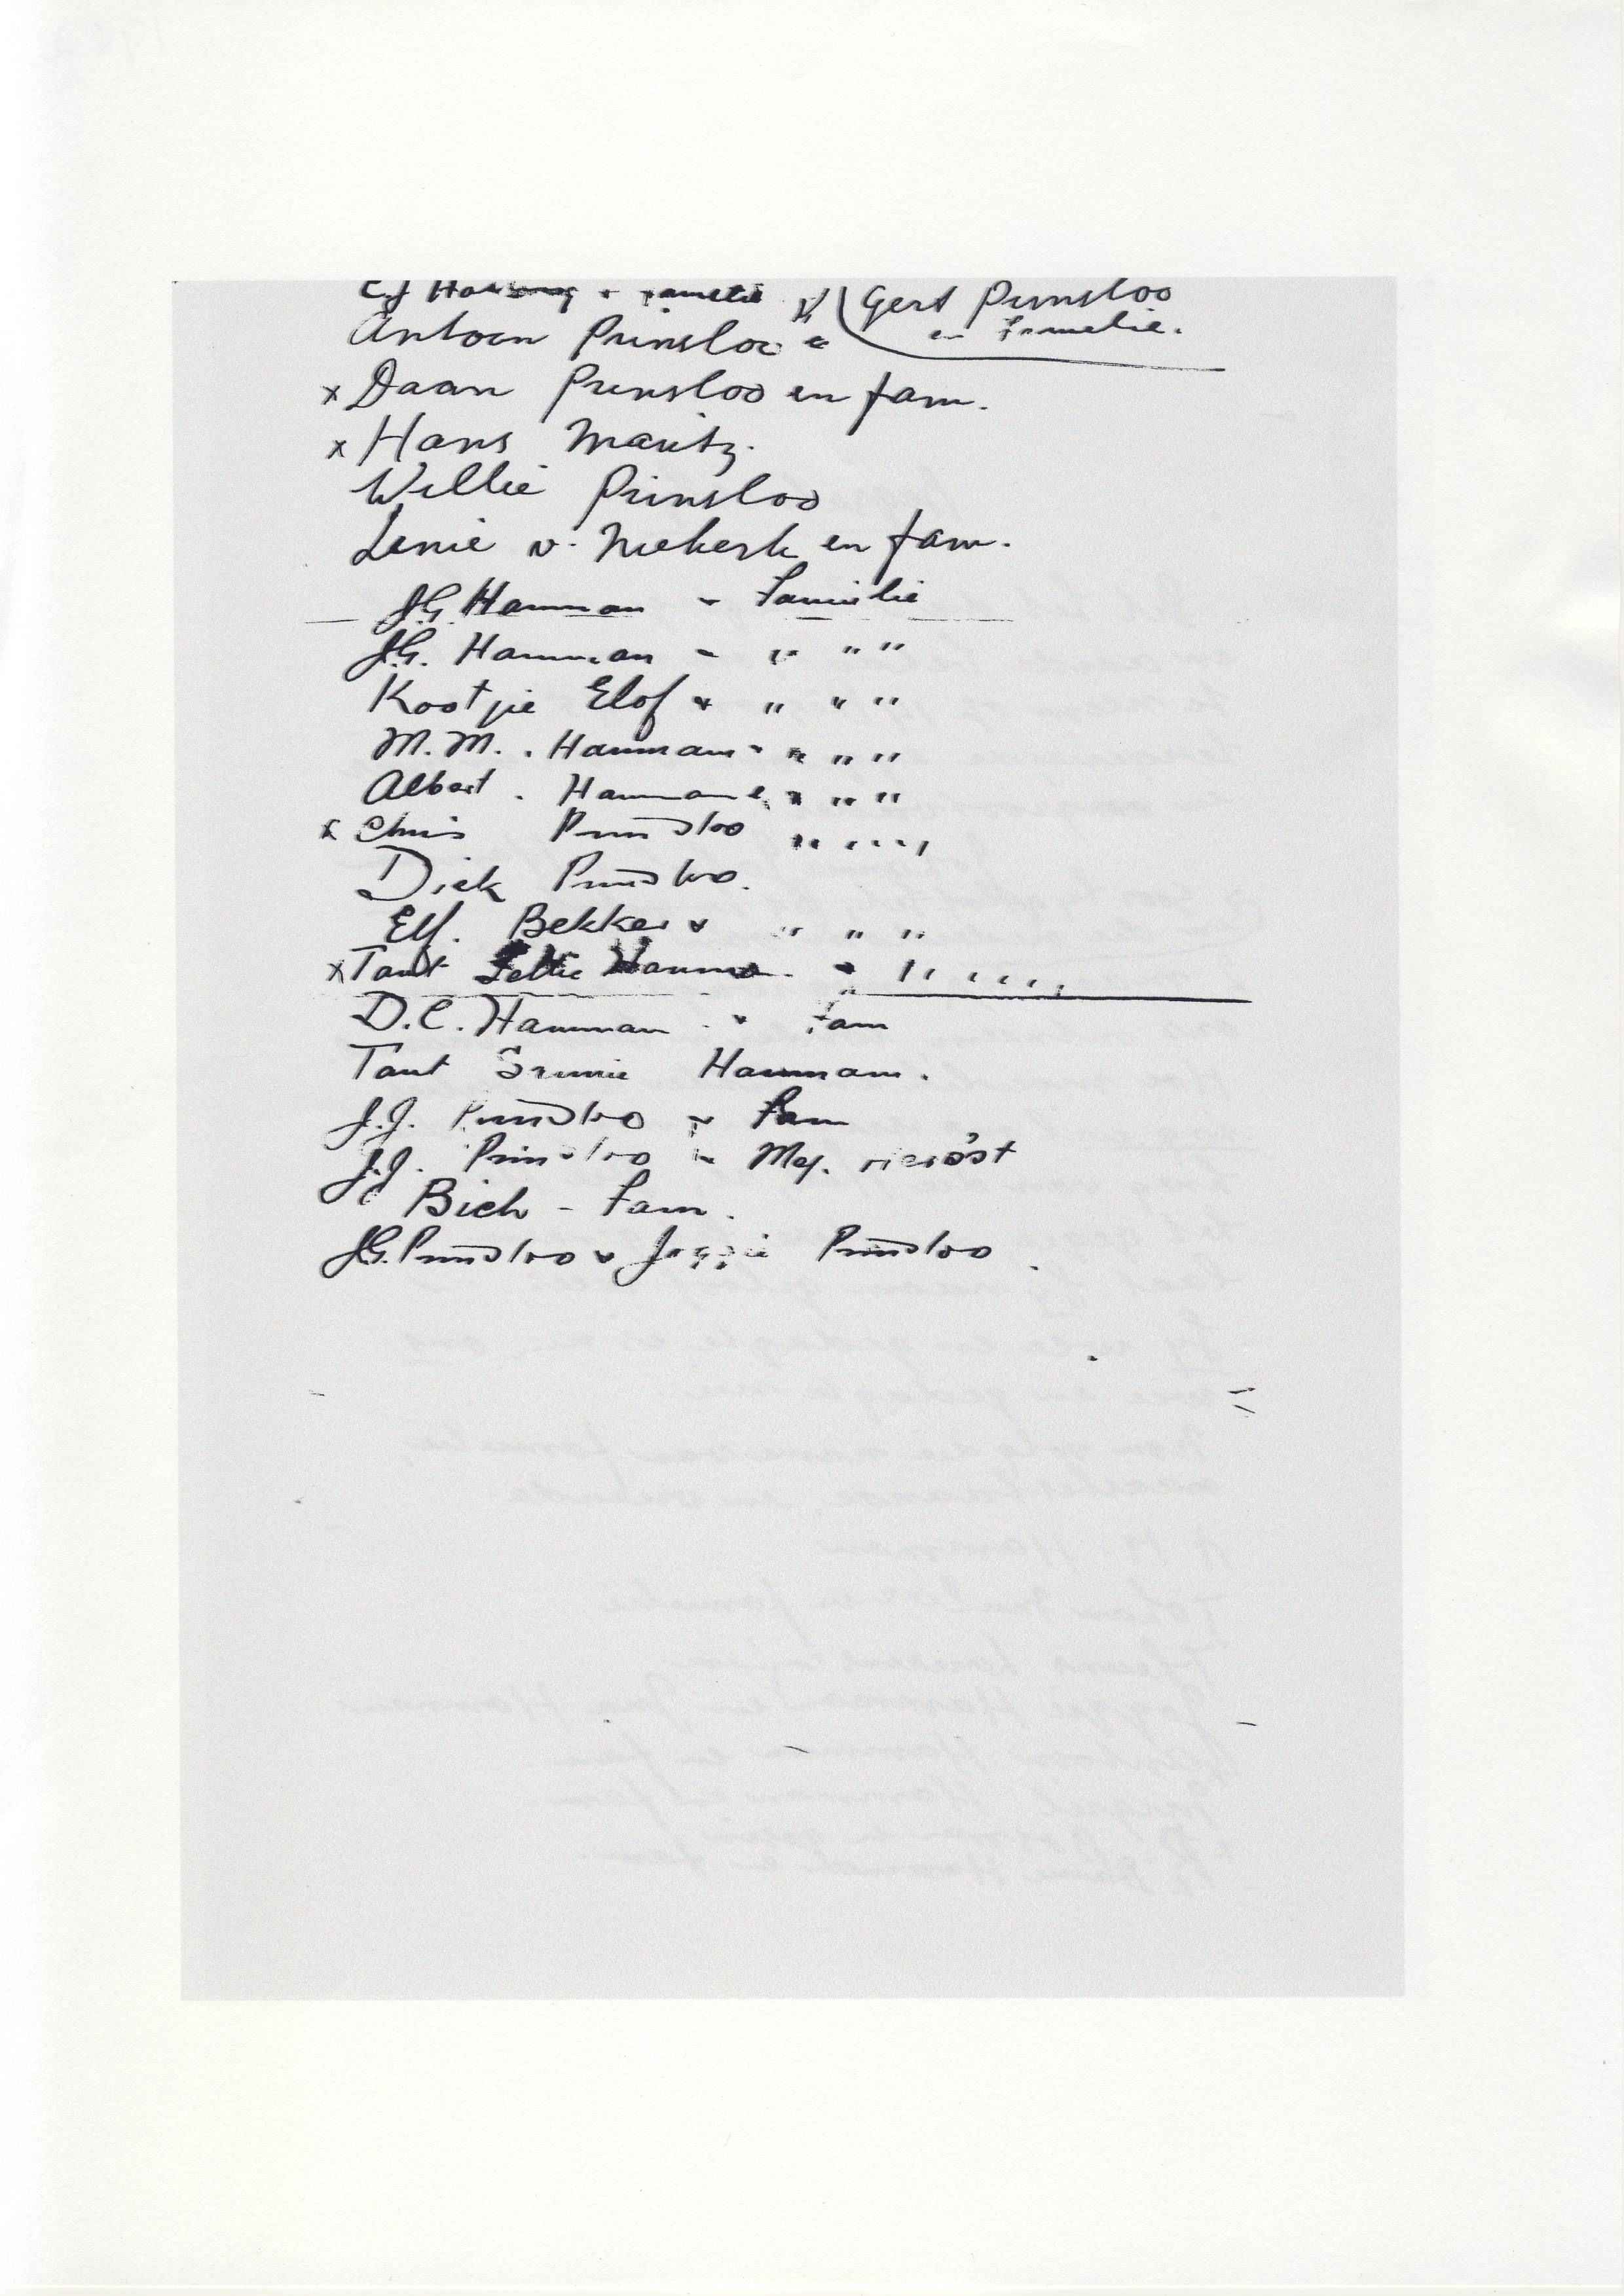 Gert Prinsloo
en Famelie.
Antoon Prinsloo
x Daan Prinsloo en fam.
x Hans Maritz.
Willie Prinsloo
Lenie v. Niekerk en fam.
J.G. Hamman - Familie
J.G. Hamman - " " "
Kootjie Elof " " "
M.M. Hamman " " "
Albert. Hamman " " "
x Chris Prinsloo " " "
Dick Prinsloo.
Elf. Bekker " " "
x Tant Lettie Hamman " " "
D.C. Hamman Fam
Tant Hamman.
J.J. Prinsloo Fam
J.J. Prinsloo Mej.
- Fam.
J.G. Prinsloo Prinsloo